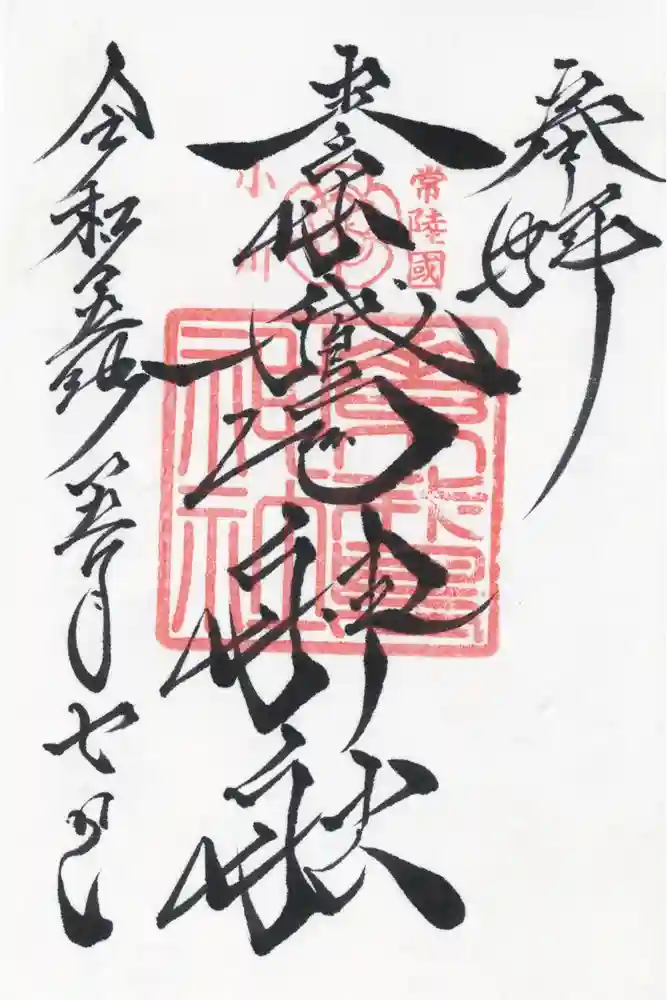 奉拝
常陸國
小川
素鵞神社
令和五年五月七日